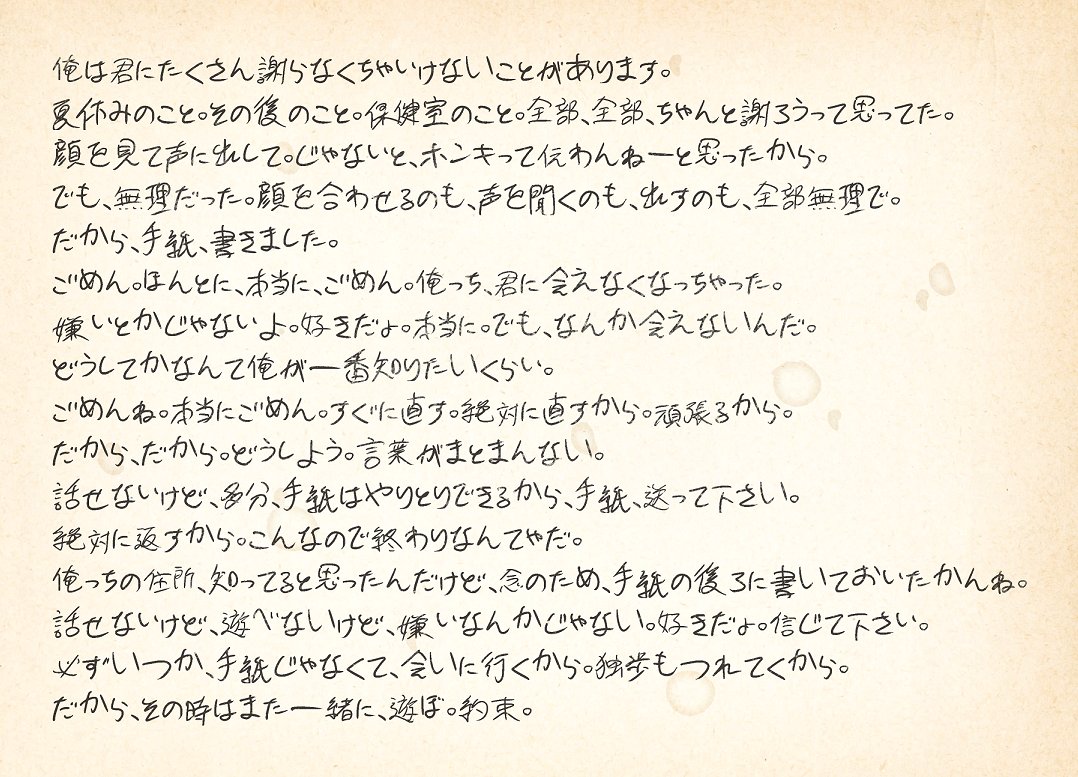 俺は君にたくさん謝らなくちゃいけないことがあります。
夏休みのこと。その後のこと。保健室のこと。全部、全部、ちゃんと謝ろうって思ってた。
顔を見て声に出して。じゃないと、ホンキって伝わんねーと思ったから。
でも、無理だった。顔を合わせるのも、声を聞くのも、出すのも、全部無理で。
だから、手紙、書きました。
ごめん。ほんとに、本当に、ごめん。俺っち、君に会えなくなっちゃった。
嫌いとかじゃないよ。好きだよ。本当に。でも、なんか会えないんだ。
どうしてかなんて俺が一番知りたいくらい。
ごめんね。本当にごめん。すぐに直す。絶対に直すから。頑張るから。
だから、だから。どうしよう。言葉がまとまんない。
話せないけど、多分、手紙はやりとりできるから、手紙、送って下さい。
絶対に返すから。こんなので終わりなんてやだ。
俺っちの住所、知ってると思ったんだけど、念のため、手紙の後ろに書いておいたかんね。
話せないけど、遊べないけど、嫌いなんかじゃない。好きだよ。信じて下さい。
必ずいつか、手紙じゃなくて、会いに行くから。独歩もつれてくから。
だから、その時はまた一緒に、遊ぼ。約束。